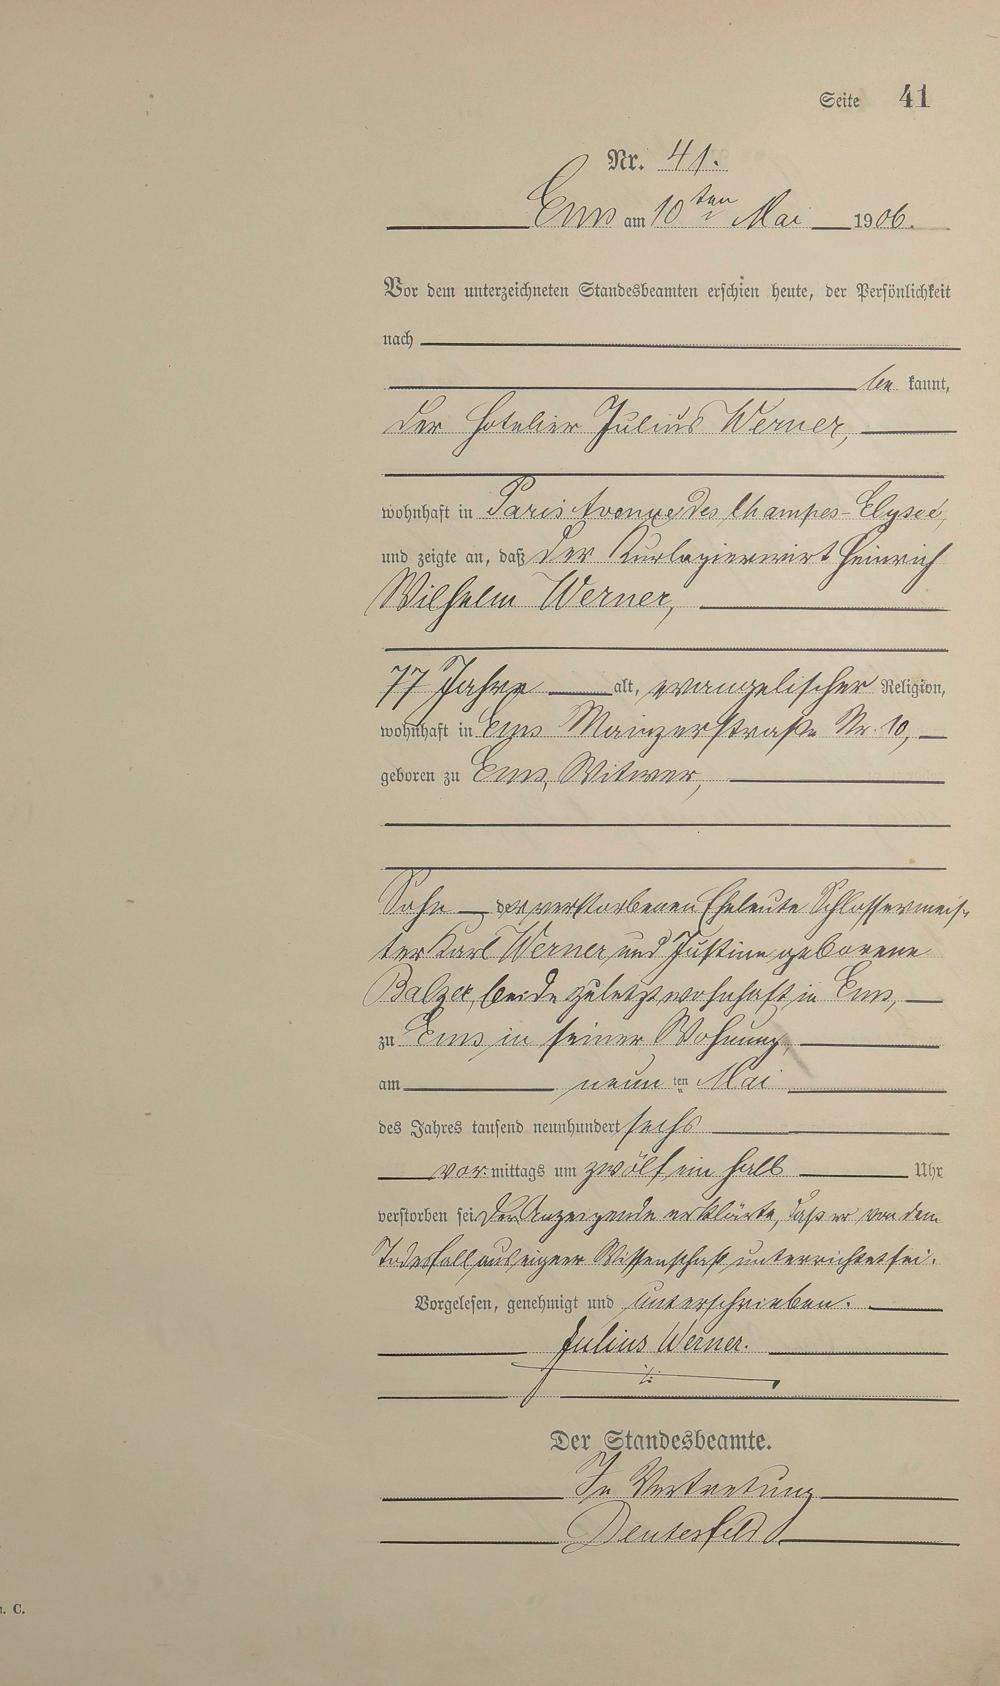 Seite 41
Nr. 41.
Ems am 10ten Mai 1906.
Vor dem unterzeichneten Standesbeamten erschien heute, der Persönlichkeit
nach
be kannt,
der Hotelier Julius Werner,
wohnhaft in Paris Avenue des Champes-Elysée,
und zeigte an, daß der Kurlogierwirt Heinrich
Wilhelm Werner,
77 Jahre alt, evangelischer Religion,
wohnhaft in Ems Mainzerstraße Nr. 10,
geboren zu Ems, Witwer,
Sohn der verstorbenen Eheleute Schlossermeis-
ter Karl Werner und Justine geborene
Balzer, beide zuletzt wohnhaft in Ems,
zu Ems in seiner Wohnung,
am neun ten Mai
des Jahres tausend neunhundert sechs
vor mittags um zwölf ein halb Uhr
verstorben sei. Der Anzeigende erklärte, daß er von dem
Todesfall aus eigener Wissenschaft unterrichtet sei.
Vorgelesen, genehmigt und unterschrieben.
Julius Werner.
Der Standesbeamte.
In Vertretung
. C.